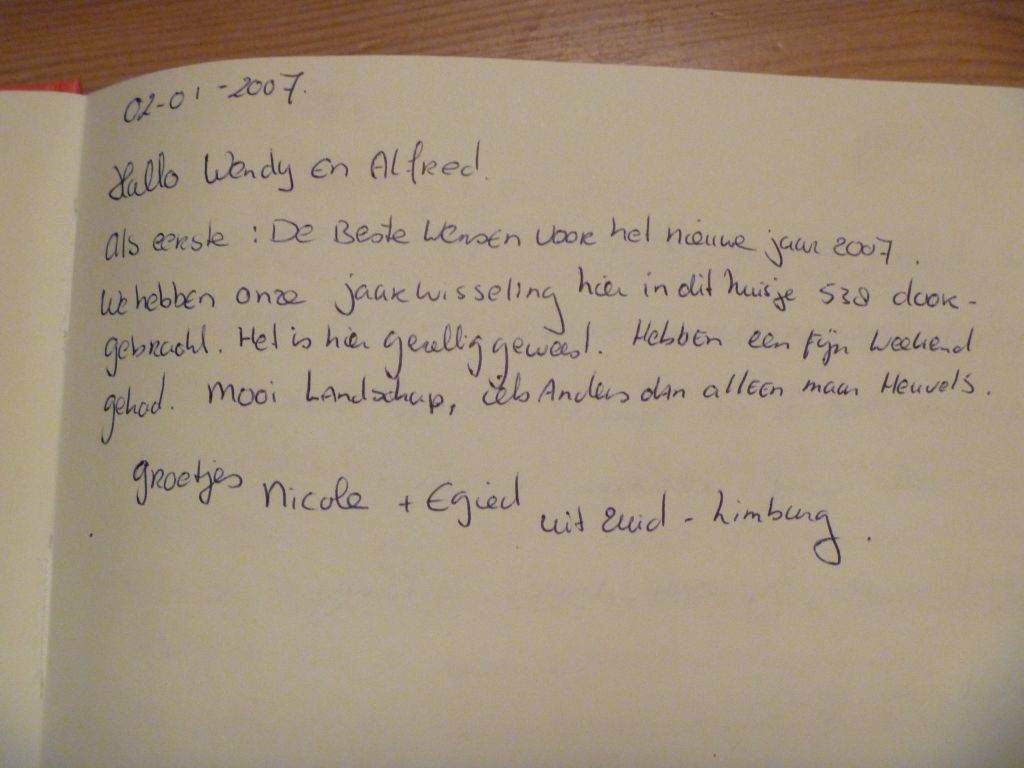 02-01-2007.
Hallo Wendy en Alfred.
Als eerste : De Beste Wensen voor het nieuwe jaar 2007.
We hebben onze jaarwisseling hier in dit huisje 538 door-
gebracht. Het is hier gezellig geweest. Hebben een fijn weekend
gehad. Mooi Landschap, iets Anders dan alleen maar Heuvels.
groetjes Nicole + Egied uit Zuid-Limburg.